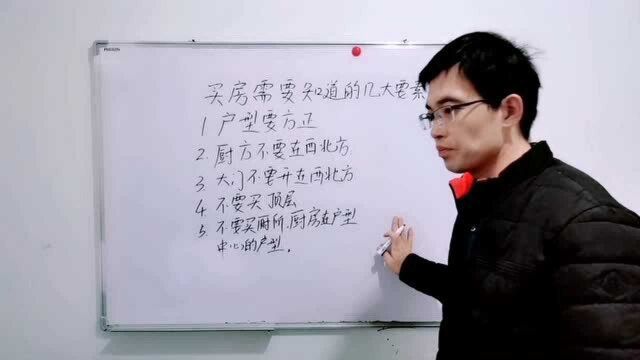 买房需要知道的几大要素
1 户型要方正
2. 厨方不要在西北方.
3. 大门不要开在西北方
4 不要买顶层
5. 不要买厕所.厨房在户型
中心的户型。